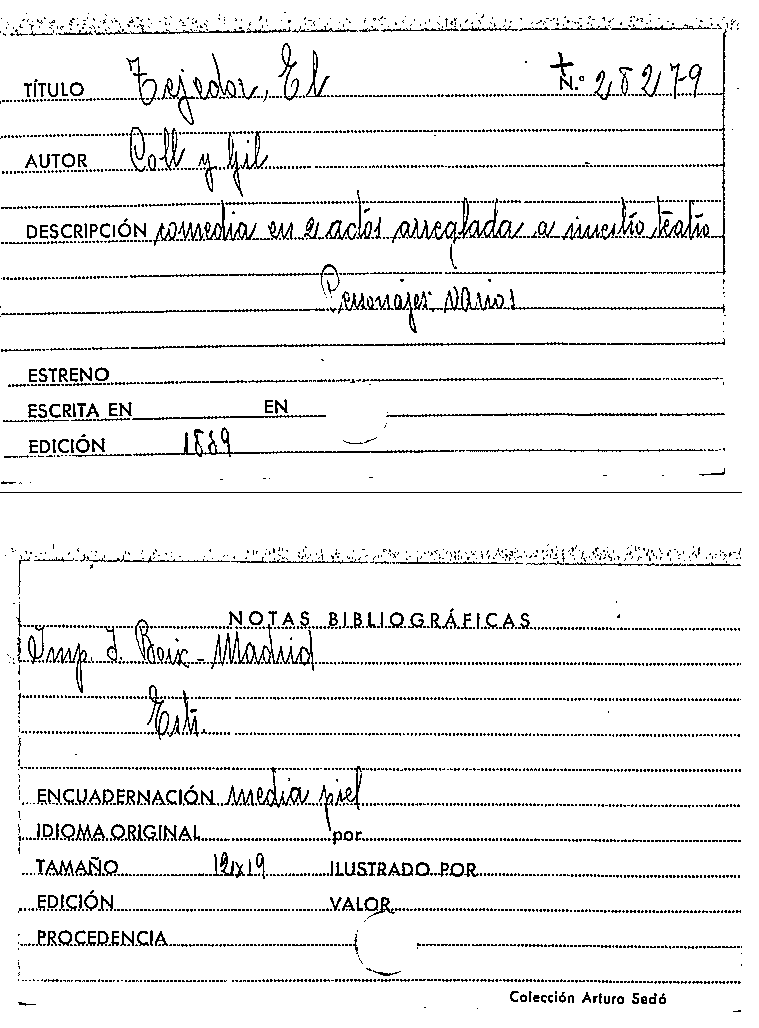 TÍTULO Tejedor, El N.º 28279
AUTOR Coll y Gil
DESCRIPCIÓN comedia en 2 actos arreglada a nuestro teatro
Personajes: varios
ESTRENO
ESCRITA EN EN
EDICIÓN 1889
NOTAS BIBLIOGRÁFICAS
Imp. J. - Madrid
Estr.
ENCUADERNACIÓN media piel
IDIOMA ORIGINAL por
TAMAÑO 12x19 ILUSTRADO POR
EDICIÓN VALOR
PROCEDENCIA
Colección Arturo Sedó